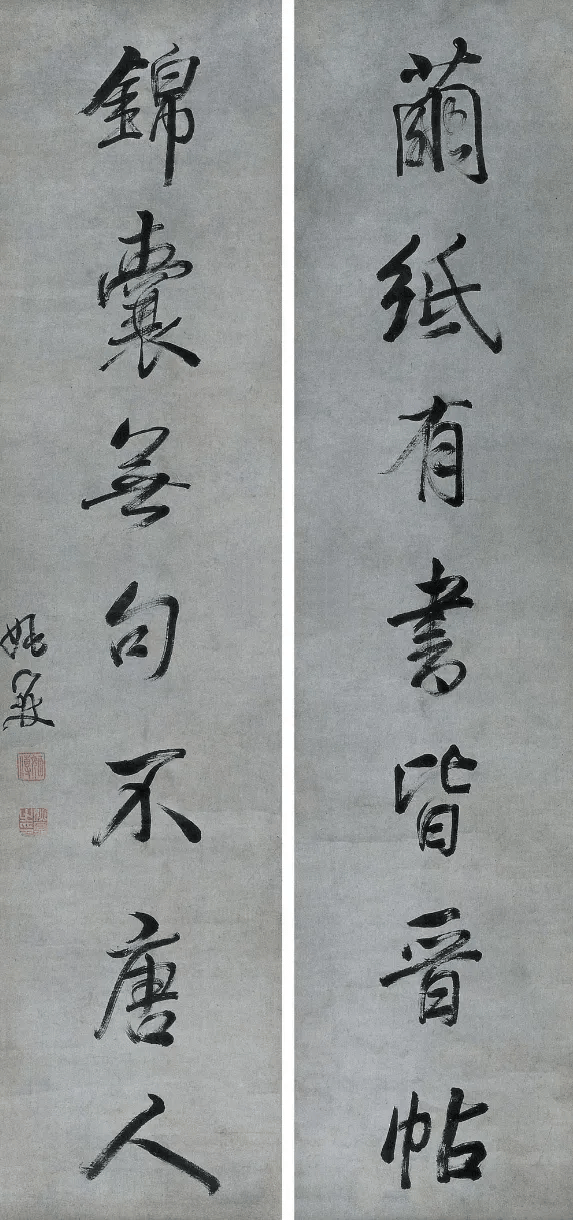 繭紙有書皆晋帖
錦囊無句不唐人
姚鼐